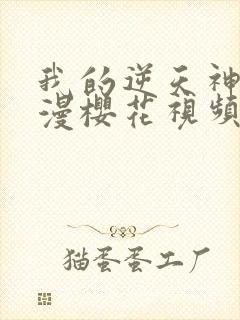 我的逆天神
漫櫻花視頻
猫蛋蛋工厂